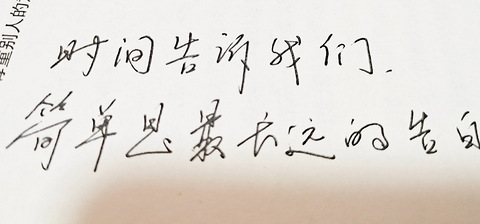 时间告诉我们.
简单是最长远的告白
重别人的